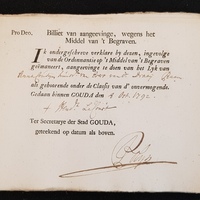 Pro Deo.
Billiet van aangeevinge, wegens het
Middel van 't Begraven.
Ik ondergeschreve verklare by dezen, ingevolge
van de Ordonnantie op 't Middel van 't Begraven
geëmaneert, aangeevinge te doen van het Lyk van
als gehoorende onder de Classis van d' onvermogende.
Gedaan binnen GOUDA den
Ter Secretarye der Stad GOUDA,
geteekend op datum als boven.